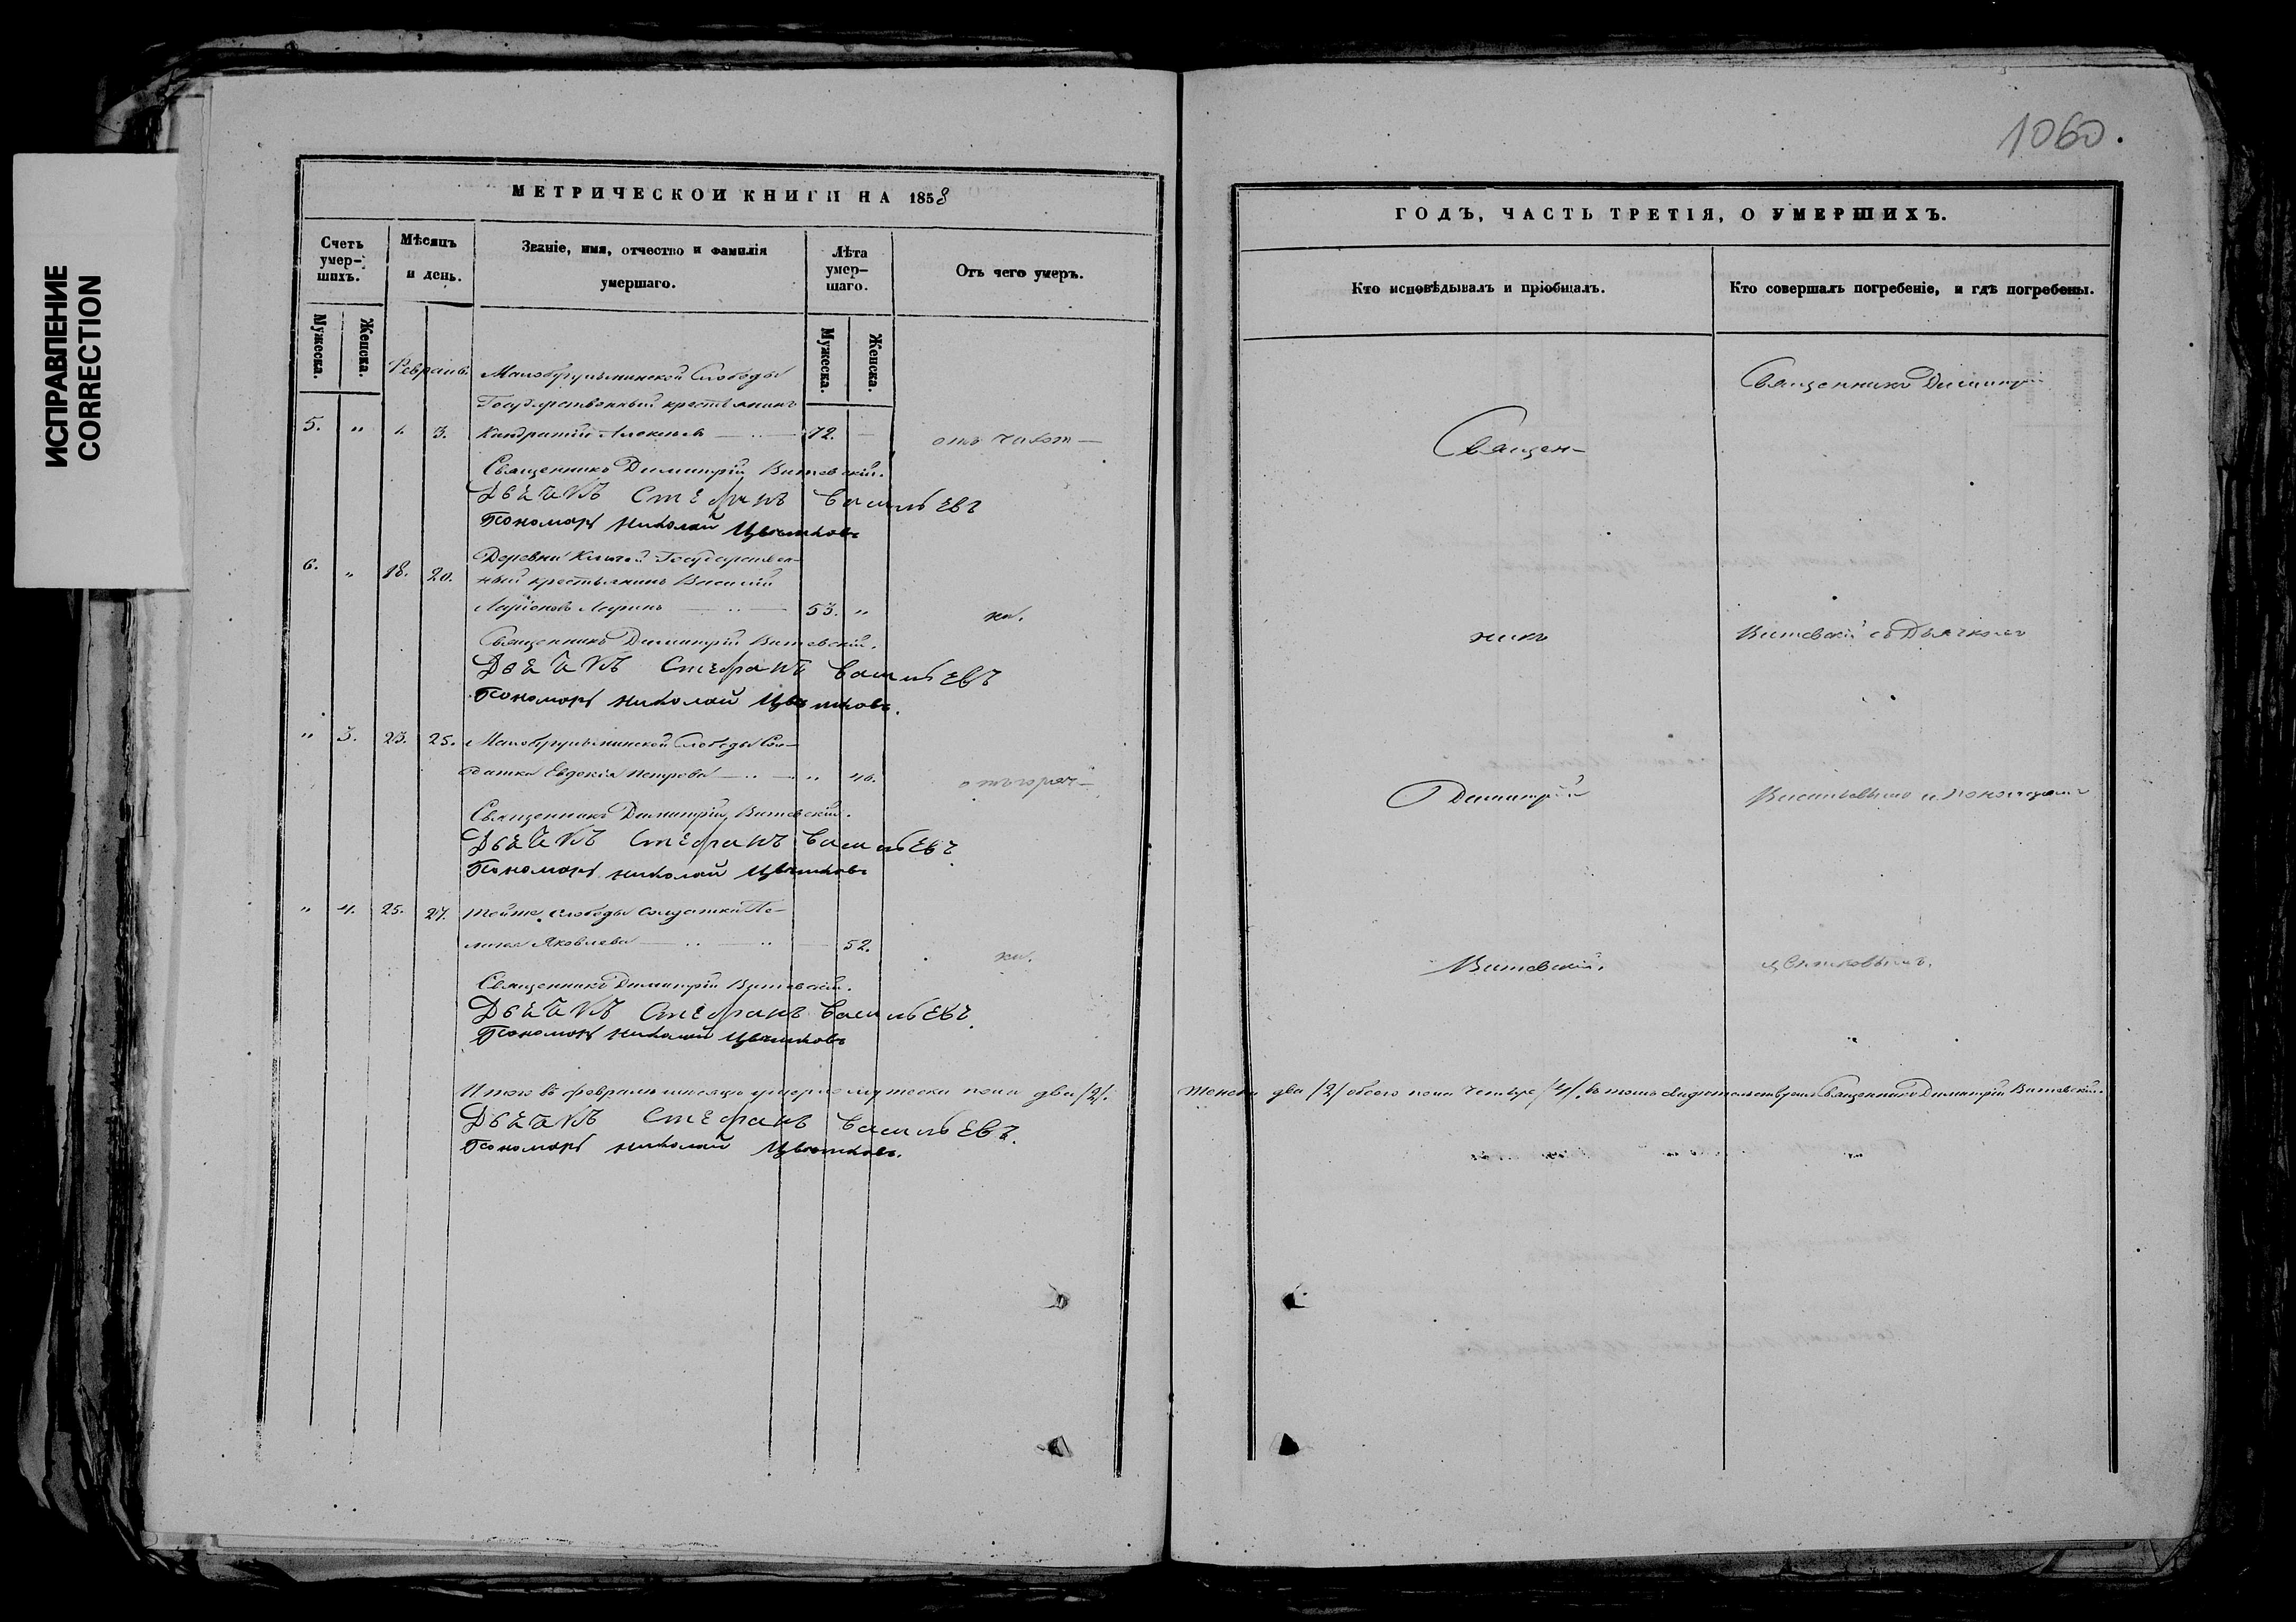 ИСПРАВЛЕНИЕ
CORRECTION
МЕТРИЧЕСКОЙ КНИГИ НА 1858
Счетъ умер-шихъ.
Мѣсяцъ и день.
Званіе, имя, отчество и фамилія умершаго.
Лѣта умер-шаго.
Отъ чего умеръ.
Мужеска.
Женска.
Мужеска.
Женска.
Февраль.
Малобугульминской Слободы
Государственный крестьянинъ
5. " 1. 3. Кондратій Алексѣевъ 72. — отъ чахот—
Священникъ Димитрій Витевскій.
Дьячокъ Стефанъ Васильевъ
Пономарь Николай Цвѣтковъ
6. " 18. 20. Деревни Государствен-
ный крестьянинъ Василій
Ларіоновъ Ларинъ 53. "
Священникъ Димитрій Витевскій.
Дьячокъ Стефанъ Васильевъ
Пономарь Николай Цвѣтковъ.
" 3. 23. 25. Малобугульминской Слободы Сол-
датка Евдокія Петрова " 46. отъ горяч—
Священникъ Димитрій Витевскій.
Дьячокъ Стефанъ Васильевъ
Пономарь Николай Цвѣтковъ
" 4. 25. 27. Тойже слободы солдатка Пе-
лагея Яковлева 52.
Священникъ Димитрій Витевскій.
Дьячокъ Стефанъ Васильевъ
Пономарь Николай Цвѣтковъ
Итого въ февралѣ мѣсяцѣ умерло мужеска пола два /2/.
Дьячокъ Стефанъ Васильевъ.
Пономарь Николай Цвѣтковъ.
1060.
ГОДЪ, ЧАСТЬ ТРЕТІЯ, О УМЕРШИХЪ.
Кто исповѣдывалъ и пріобщалъ.
Кто совершалъ погребеніе, и гдѣ погребены.
Священникъ Димитрій
Священ-
никъ
Витевскій съ Дьячкомъ
Димитрій
Васильевымъ и пономаремъ
Витевскій.
Цвѣтковымъ.
женска два /2/ обоего пола четыре /4/. въ томъ свидѣтельствуемъ Священникъ Димитрій Витевскій.